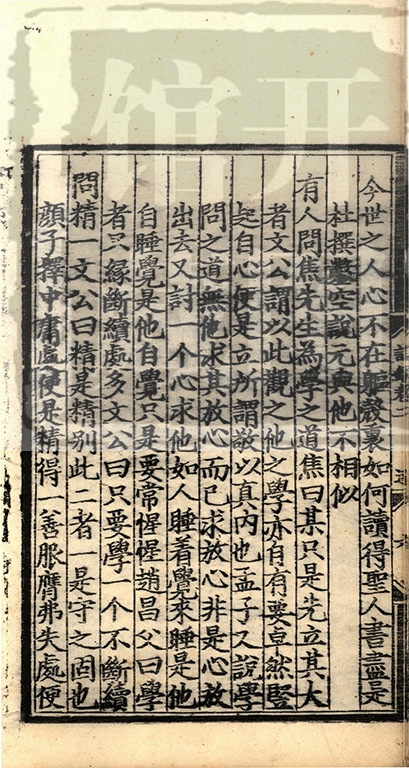 今世之人心不在軀殼裏如何讀得聖人書盡是
杜撰鑿空說元與他不相似
有人問焦先生為學之道焦曰某只是先立其大
者文公謂以此觀之他之學亦自有要卓然竪
起自心便是立所謂敬以直内也孟子又說學
問之道無他求其放心而已求放心非是心放
出去又討一个心求他如人睡着覺來睡是他
自睡覺是他自覺只是要常惺惺趙昌父曰學
者只緣斷續處多文公曰只要學一个不斷續
問精一文公曰精是精別此二者一是守之固也
顔子擇中庸處便是精得一善服膺弗失處便
开
馆